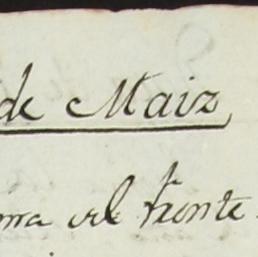 de Maiz,
al frente